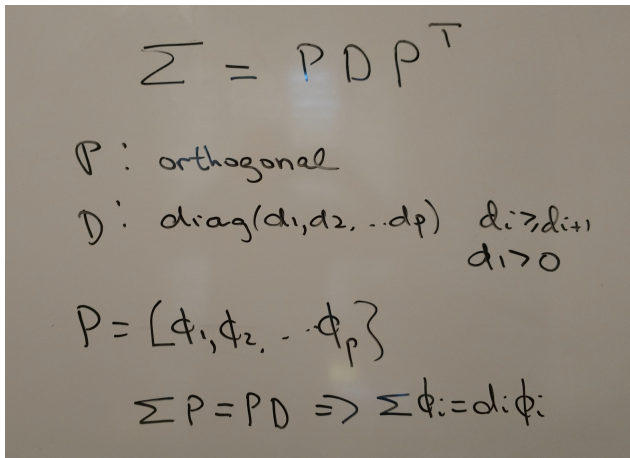 Σ = PDPᵀ
P : orthogonal
D : diag(d₁,d₂, ..dp) dᵢ≥dᵢ₊₁
d₁>0
P = [ϕ₁,ϕ₂, - ·· ϕₚ}
ΣP=PD => Σϕᵢ=dᵢϕᵢ